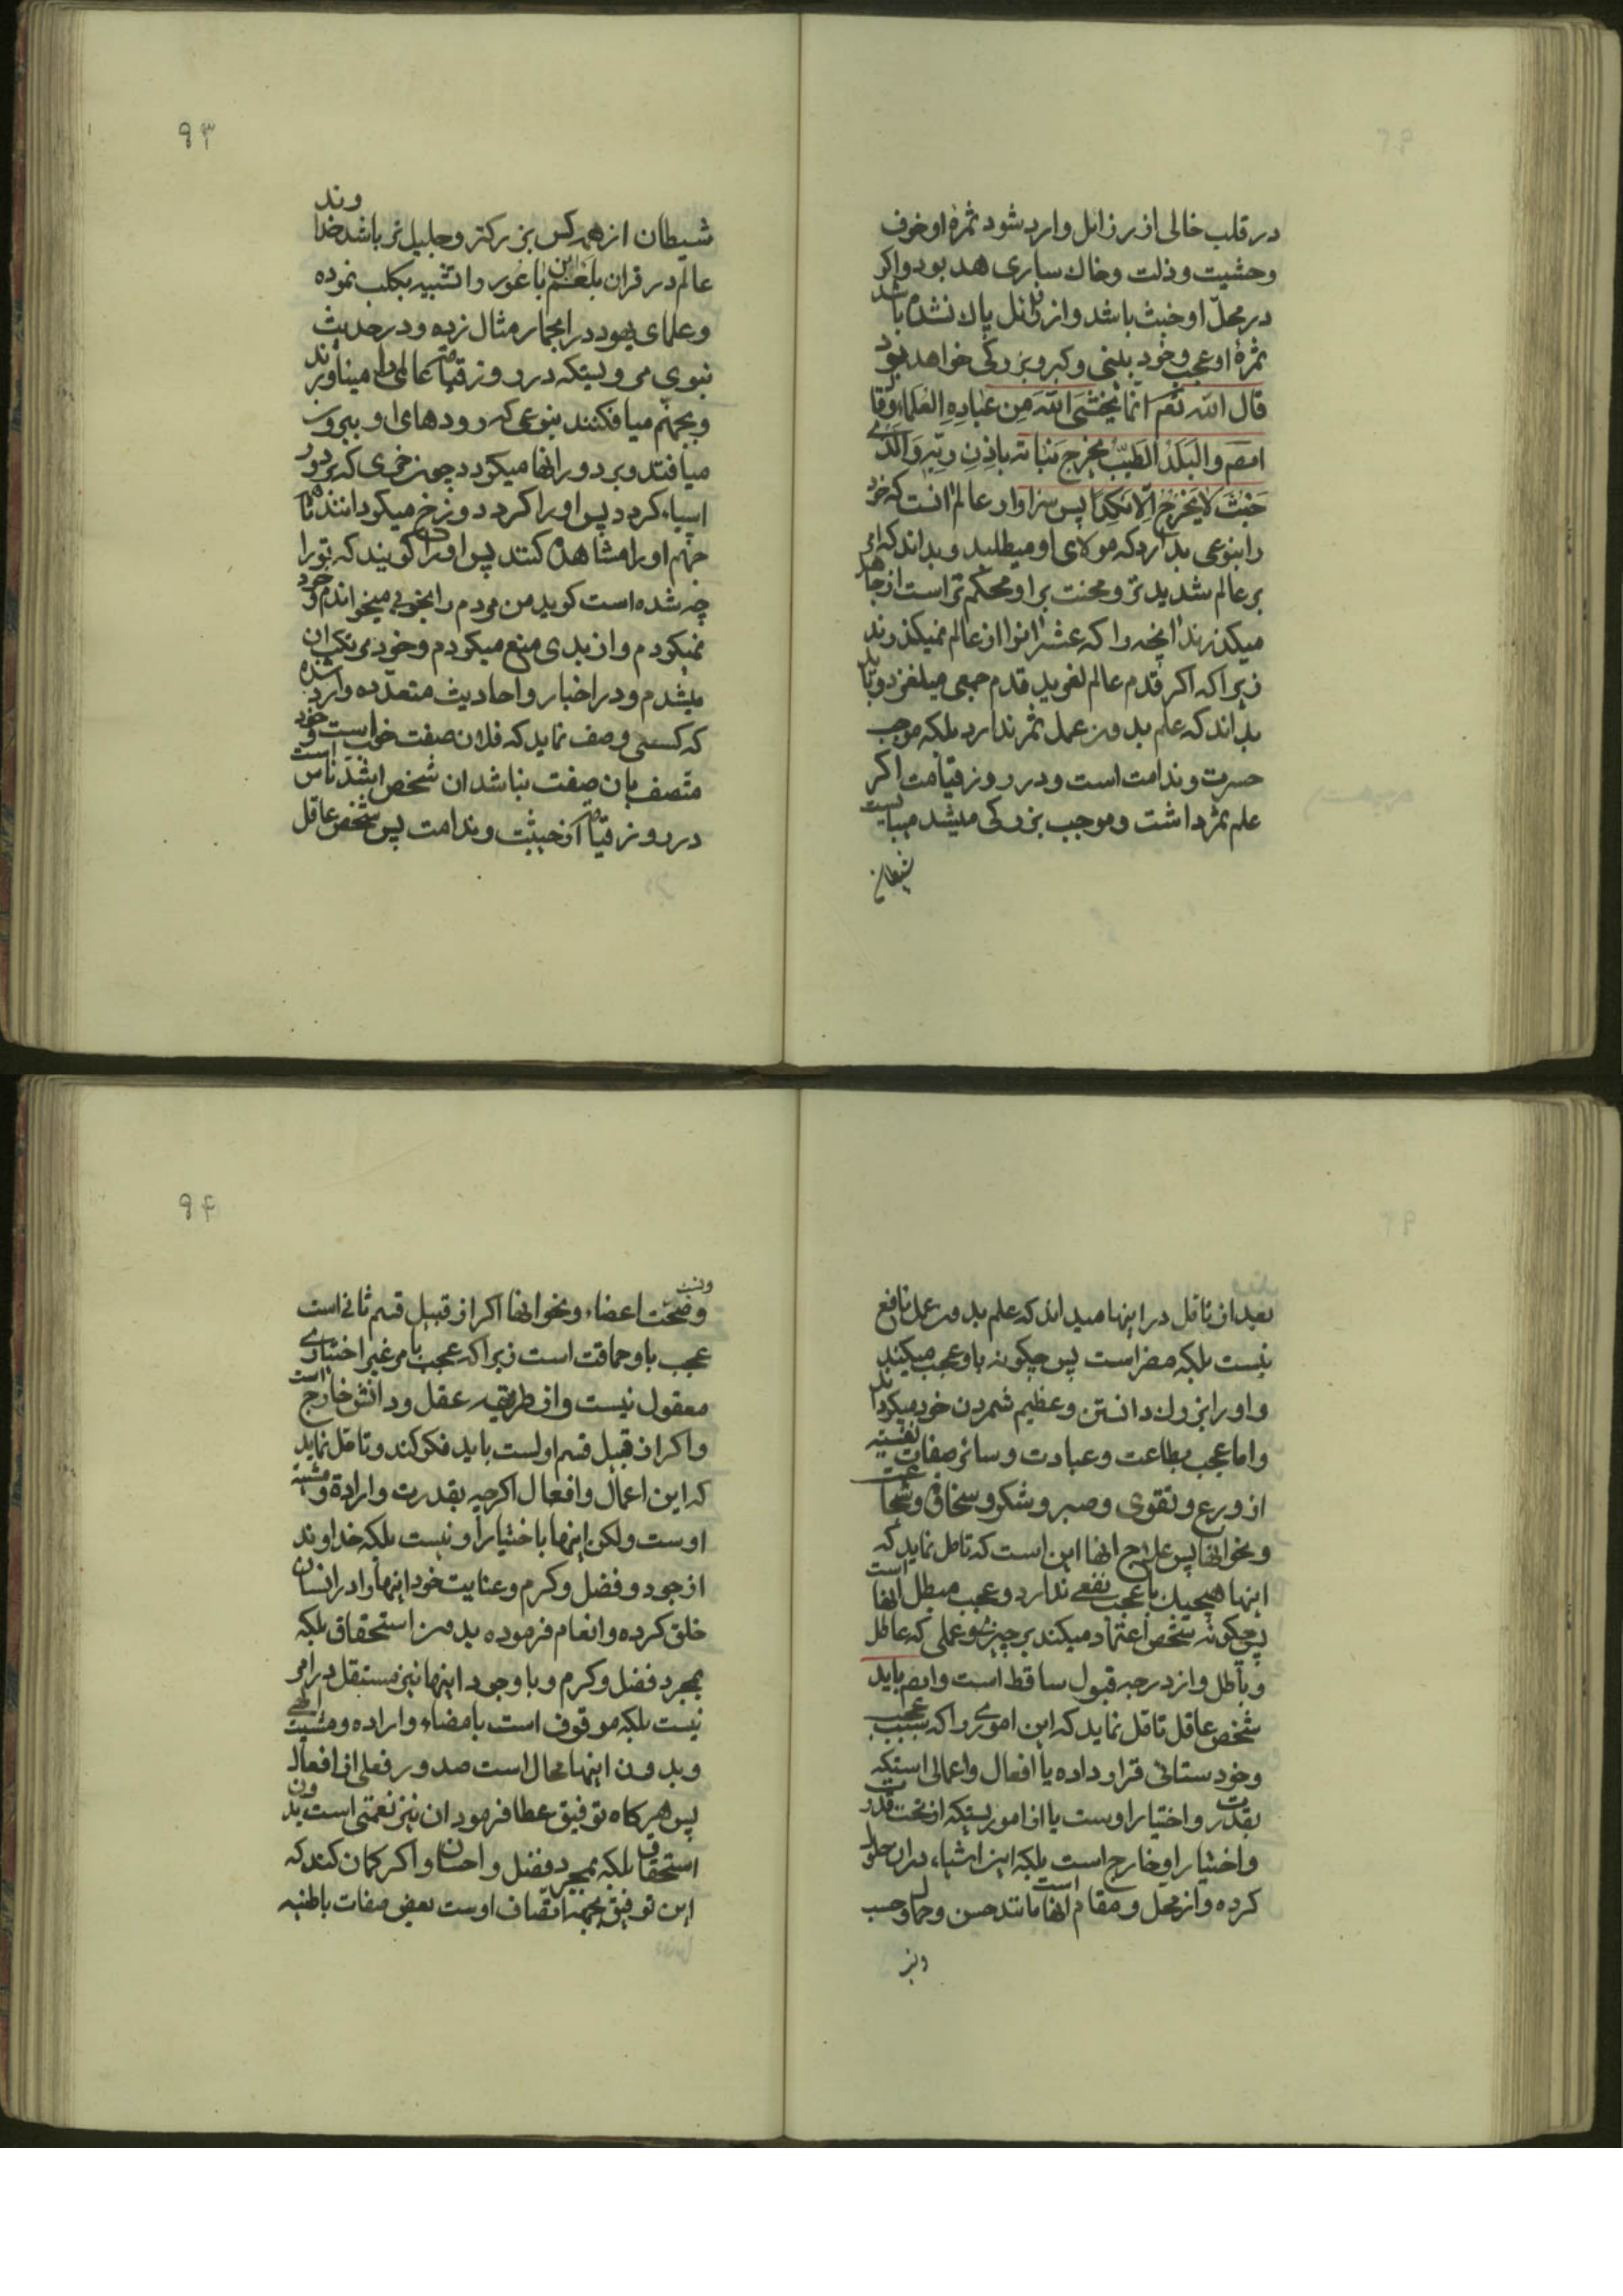 در قلب خالی از رذائل وارد شود ثمرهٔ او خوف
و خشیت و ذلت و خاک ساری خواهد بود و اکر
در محلّ او خبث باشد و از رذائل پاک نشده باشد
ثمرهٔ او عجب و خود بینی و کبر و بزرکی خواهد بود
قال اللّه تعم انّما یَخشَی اللّهَ مِن عِبادِهِ العُلَماء و قال
ایضم و البَلَدُ الطَّیِّبُ یَخرُج نَباتُه بِاِذنِ رَبِّهِ وَ الَّذی
خَبُثَ لا یَخرُجُ اِلّا نَکِداً پس سزاوار عالم انست که خود
را بنوعی بدارد که مولای او میطلبد و بداند که امر
بر عالم شدیدتر و محنت بر او محکم تر است از جاهل
میکذرند انچه را که عشر انرا از عالم نمیکذرند
زیرا که اکر قدم عالم لغزید قدم جمعی میلغزد و باید
بداند که علم بدون عمل ثمر ندارد بلکه موجب
حسرت و ندامت است و در روز قیامت اکر
علم ثمر داشت و موجب بزرکی میشد میبایست
شیطان
۹۳
شیطان از همه کس بزرکتر و جلیل تر باشد خداوند
عالم در قران بلعم ابن باعور را تشبیه بکلب نموده
و علمای یهود در ا بحمار مثال زده و در حدیث
نبوی مرویستکه در روز قیامت عالمی را میناورند
و بجهنّم میافکنند بنوعی که رودهای او بیرون
میافتد و بر دور انها میکردد چون خری که بر دور
اسیاء کردد پس او را کرد دوزخ میکردانند تا اهل
جهنم او را مشاهده کنند پس او را کویند که تو را
چه شده است کوید من مردم را بخوبی میخواندم و خود
نمیکردم و از بدی منع میکردم و خود مرتکب ان
میشدم و در اخبار و احادیث متعدّده وارد شده
که کسی وصف نماید که فلان صفت خوب است و خود
متصف بان صفت نباشد ان شخص اشدّ ناس است
در روز قیامت از حیثت و ندامت پس شخص عاقل
بعد از تامّل در اینها میداند که علم بدون عمل نافع
نیست بلکه مضر است پس چکونه باو عجب میکند
و او را بزرک دانستن و عظیم شمردن خود میکرداند
و اما عجب بطاعت و عبادت و سائر صفات نفسیّه
از ورع و تقوی و صبر و شکر و سخاوت و شجاعت
و نحو انها پس علاج انها این است که تامل نماید که
اینها هیچیک با عجب نفعی ندارد و عجب مبطل انها است
پس چکونه شخص اعتماد میکند بر چیزی و عملی که عاطل
و باطل و از درجه قبول ساقط است و ایضم باید
شخص عاقل تامّل نماید که این اموری را که سبب عجب
و خود ستائی قرار داده یا افعال و اعمالی استکه
بقدرت و اختیار اوست یا از اموریستکه از تحت قدرت
و اختیار او خارج است بلکه این اشیاء در ان حلول
کرده و از محل و مقام انها است مانند حسن و جمال و حسب
و نیز
۹۴
و نسب
و صحّت اعضاء و نحو انها اکر از قبیل قسم ثانی است
عجب باو حماقت است زیرا که عجب بامر غیر اختیاری
معقول نیست و از طریقه عقل و دانش خارج است
و اکر از قبیل قسم اولست باید فکر کند و تامّل نماید
که این اعمال و افعال اکرچه بقدرت و اراده و مشیّت
اوست ولکن اینها باختیار او نیست بلکه خداوند
از جود و فضل و کرم و عنایت خود اینها را در انسان
خلق کرده و انعام فرموده بدون استحقاق بلکه
بمجرد فضل و کرم و با وجود اینها نیز مستقل در امر
نیست بلکه موقوف است بامضاء و اراده و مشیت الهی
و بدون اینها محال است صدور فعلی از افعال
پس هر کاه توفیق عطا فرمود ان نیز نعمتی است بدون
استحقاق بلکه بمجرد فضل و احسان و اکر کمان کند که
این توفیق بجهة اتّصاف اوست بعض صفات باطنیه